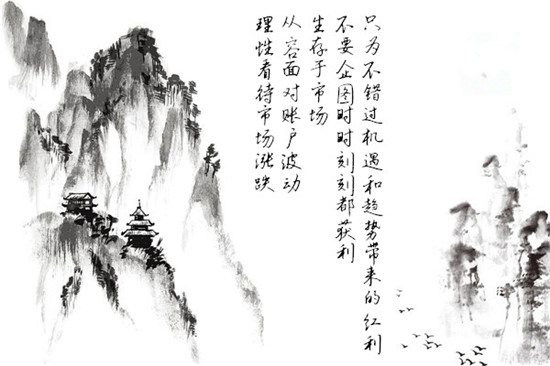 理性看待市场涨跌
从容面对账户波动
生存于市场
不要企图时时刻刻都获利
只为不错过机遇和趋势带来的红利